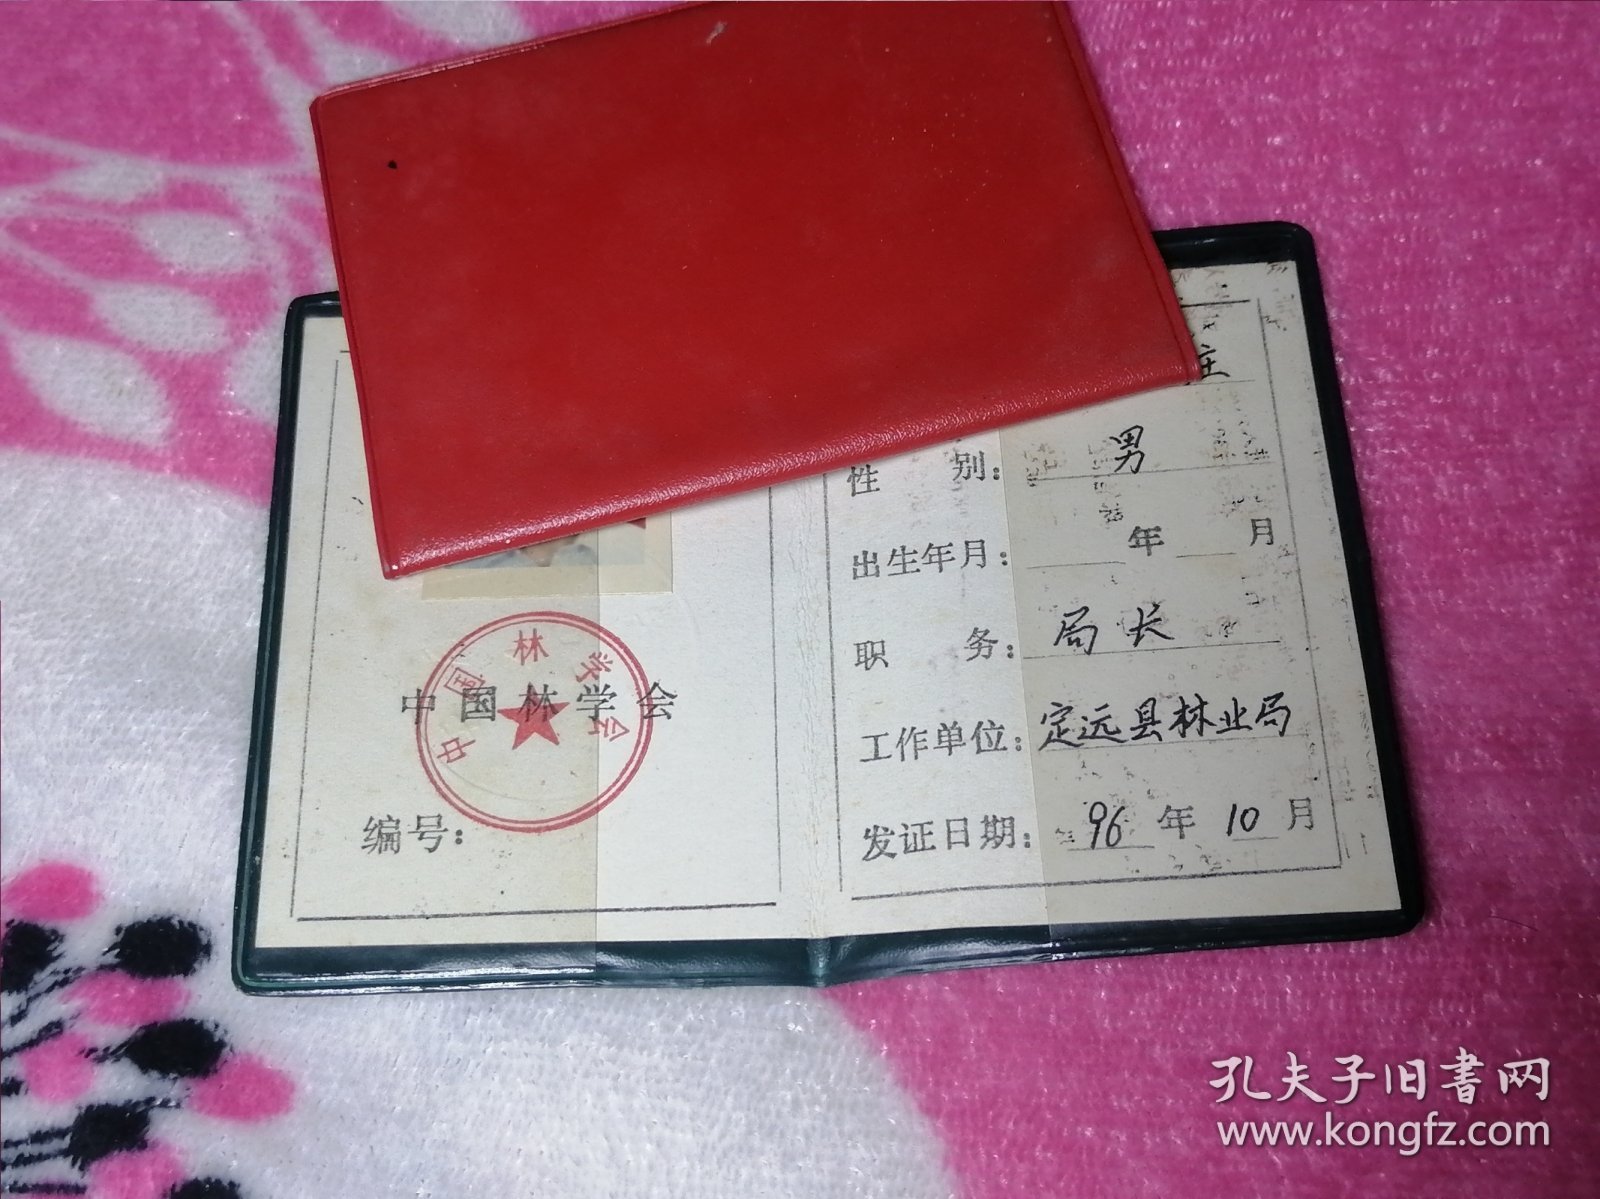 中国林学会
中国林学会
编号：
性 别： 男
出生年月： 年 月
职 务： 局长
工作单位： 定远县林业局
发证日期： 96 年 10 月
孔夫子旧书网
www.kongfz.com